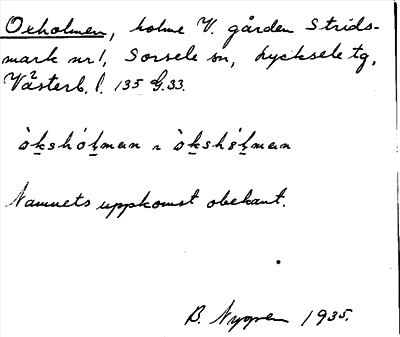 Oxholmen, holme V. gården Strids-
mark nr 1, Sorsele sn, Lycksele tg,
Västerb. l. 135 G. 33.
òkshóḷman ~ òkshóḷman
Namnets uppkomst obekant.
B. Nygren 1935.